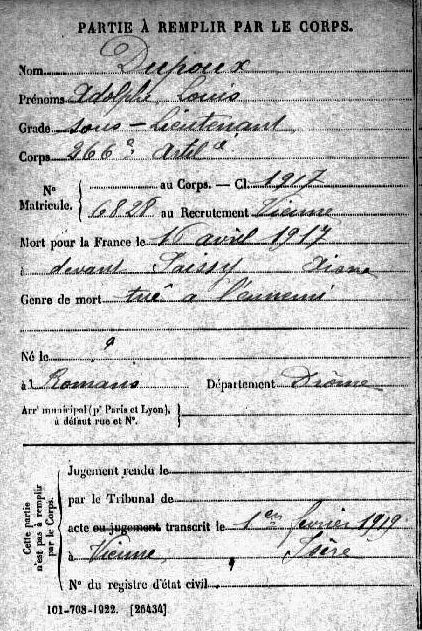 PARTIE À REMPLIR PAR LE CORPS.
Nom Dupoux
Prénoms Adolphe Louis
Grade sous-Lieutenant
Corps 266e Artie
No Matricule. { au Corps. — Cl. 1917
6828 au Recrutement Vienne
Mort pour la France le 16 avril 1917
à devant Paissy Aisne
Genre de mort tué à l'ennemi
Né le ?
à Romans Département Drôme
Arrt municipal (pr Paris et Lyon), à défaut rue et No.
Cette partie n'est pas à remplir par le Corps.
Jugement rendu le
par le Tribunal de
acte ou jugement transcrit le 1er février 1919
à Vienne, Isère
No du registre d'état civil
101-708-1922. [26434]